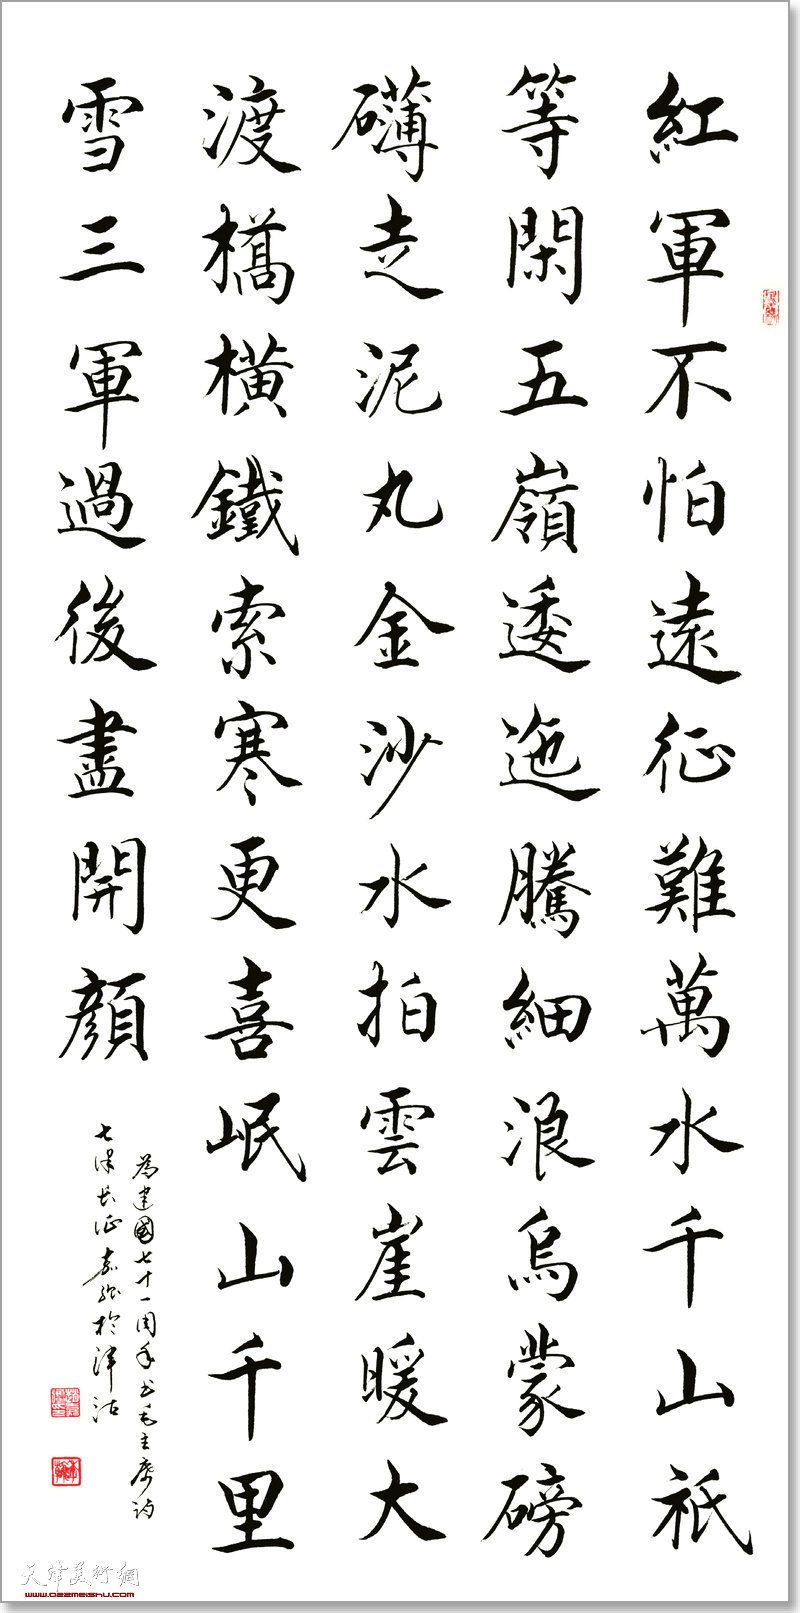 紅軍不怕遠征難萬水千山祇
等閑五嶺逶迤騰細浪烏蒙磅
礴走泥丸金沙水拍雲崖暖大
渡橋橫鐵索寒更喜岷山千里
雪三軍過後盡開顏
為建國七十一周年書毛主席詩
七律長征 於津沽
天津美術網
www.022meishu.com